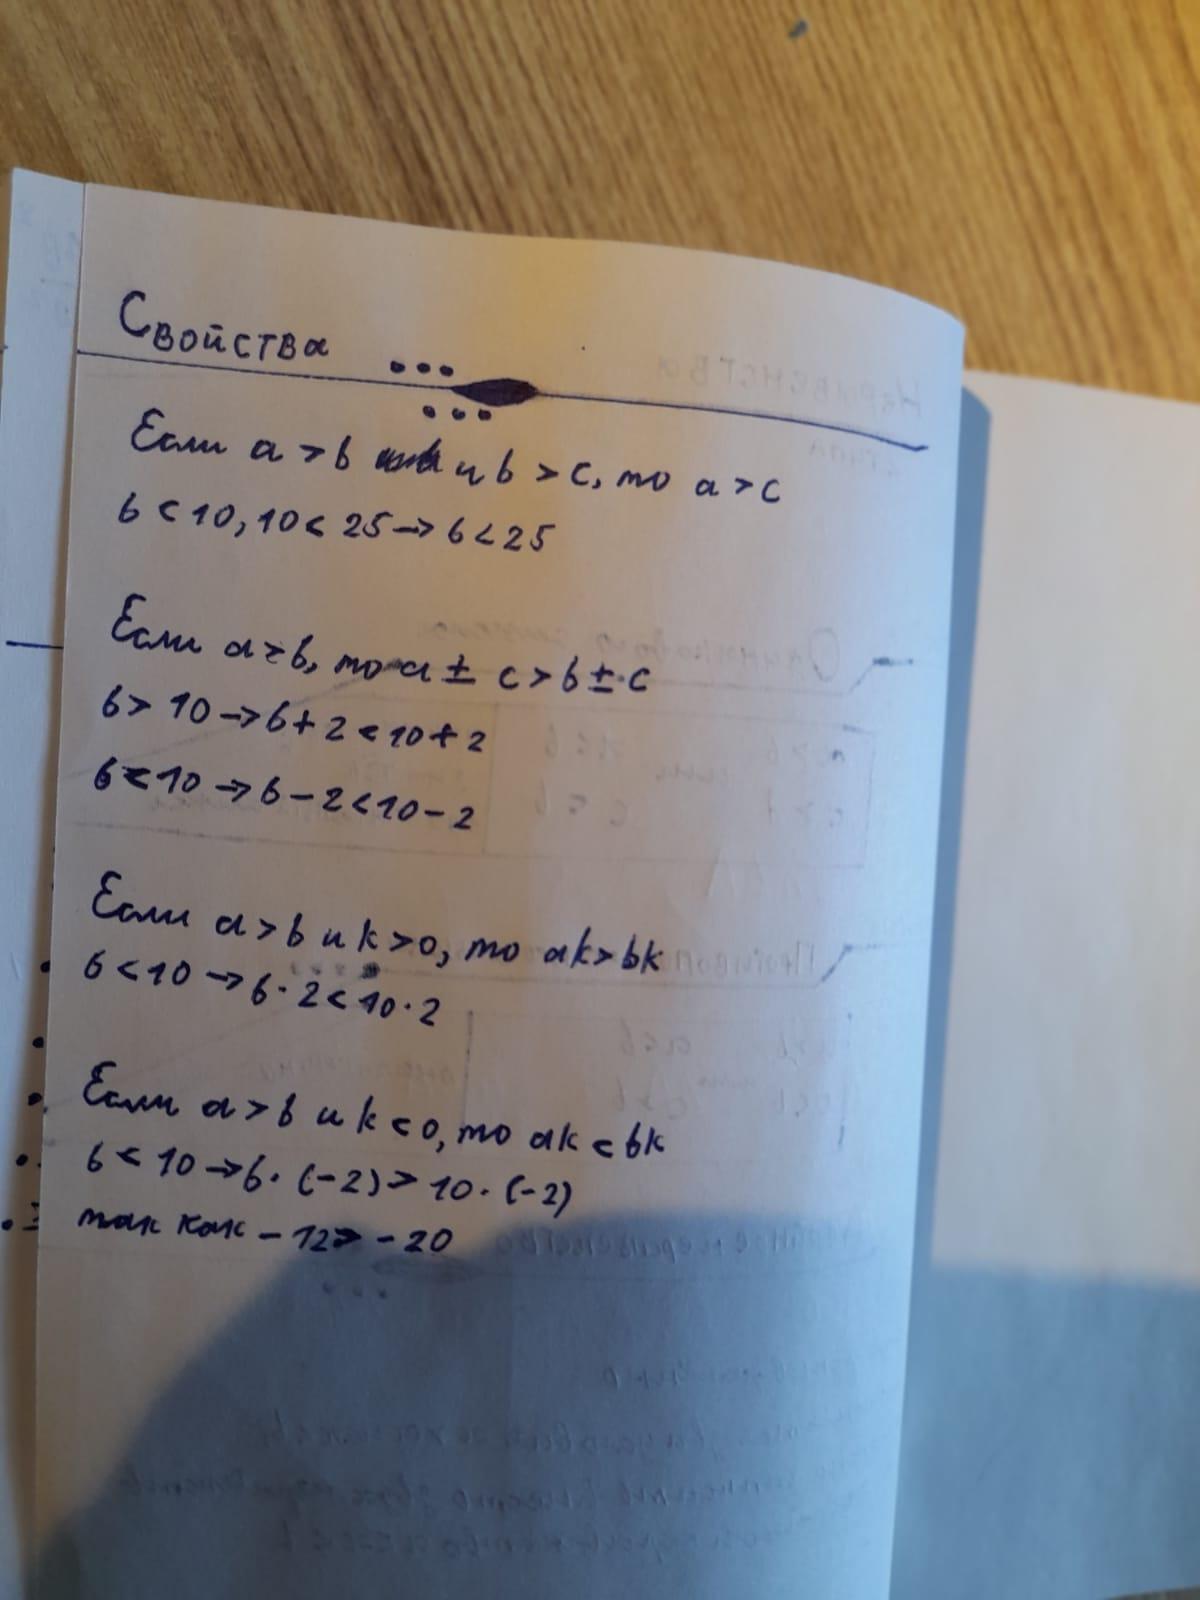 Свойства
Если a > b и b > c, то a > c
6 < 10, 10 < 25 → 6 < 25
Если a > b, то a ± c > b ± c
6 > 10 → 6 + 2 < 10 + 2
6 < 10 → 6 - 2 < 10 - 2
Если a > b и k > 0, то ak > bk
6 < 10 → 6 · 2 < 10 · 2
Если a > b и k < 0, то ak < bk
6 < 10 → 6 · (-2) > 10 · (-2)
так как -12 > -20